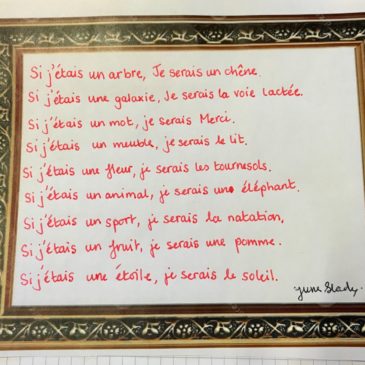 Si j'étais un arbre, Je serais un chêne.
Si j'étais une galaxie, Je serais la voie lactée.
Si j'étais un mot, je serais Merci.
Si j'étais un meuble, je serais le lit.
Si j'étais une fleur, je serais les tournesols.
Si j'étais un animal, je serais un éléphant.
Si j'étais un sport, je serais la natation,
Si j'étais un fruit, je serais une pomme.
Si j'étais une étoile, je serais le soleil.